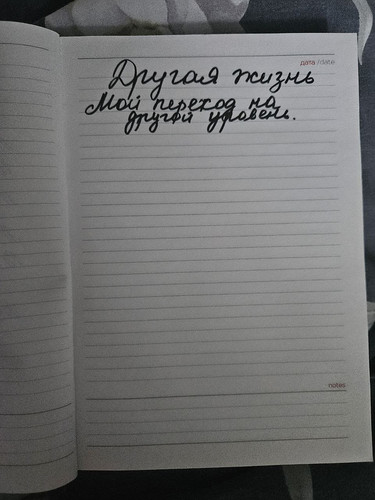 дата / date
Другая жизнь
Мой переход на
другой уровень.
notes